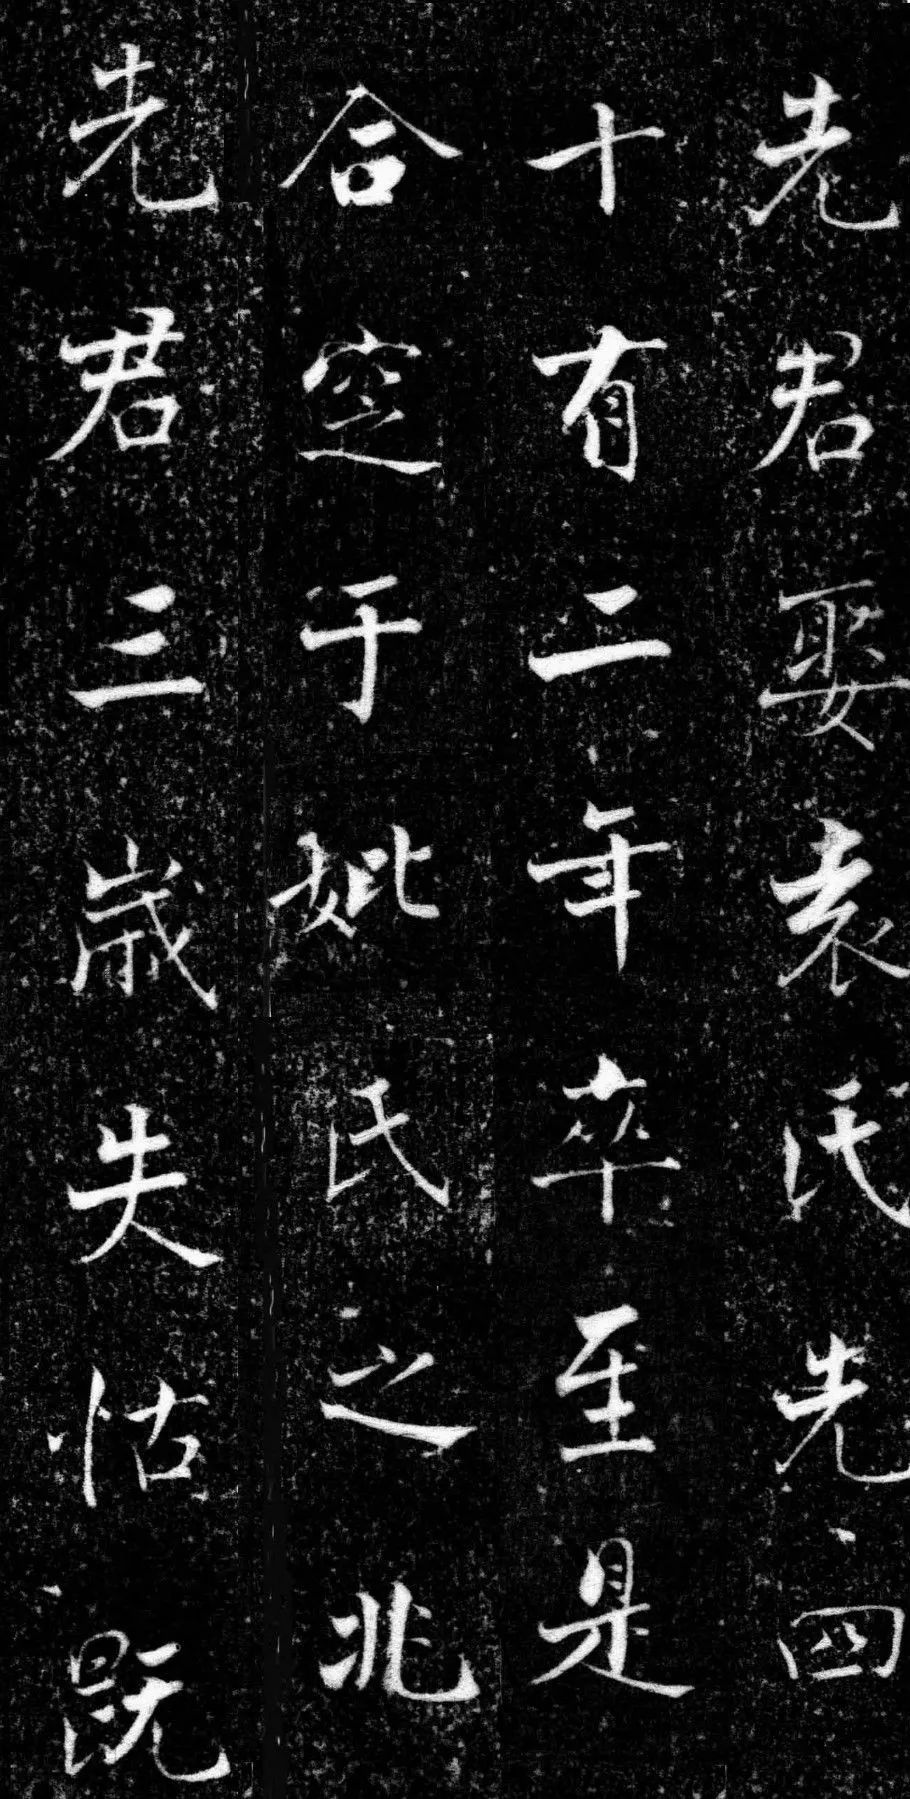 先君娶袁氏先四
十有二年卒至是
合窆于妣氏之兆
先君三歲失怙既